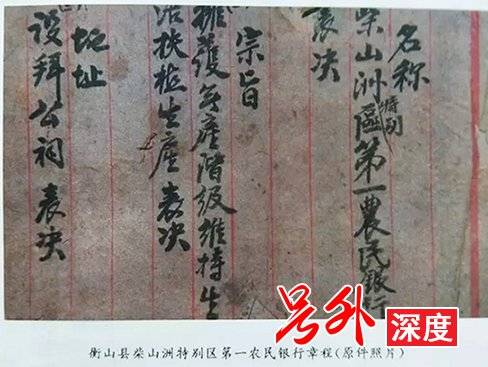 名称
柴山洲特别區第一農民銀行
表决
宗旨
擁護無產階級維持生
活扶植生產表决
地址
设拜公祠表决
号外
深度
衡山县柴山洲特别区第一农民银行章程(原件照片)